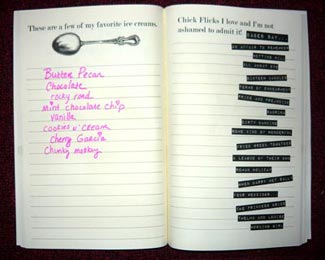 These are a few of my favorite ice creams.
Butter Pecan
Chocolate
rocky road
Mint chocolate chip
vanilla
cookies n' cream
Cherry Garcia
Chunky monkey
Chick Flicks I love and I'm not
ashamed to admit it
AN AFFAIR TO REMEMBER
NOTTING HILL
SIXTEEN CANDLES
TERMS OF ENDEARMENT
PRIDE AND PREJUDICE
DIRTY DANCING
SOME KIND OF WONDERFUL
FRIED GREEN TOMATOES
A LEAGUE OF THEIR OWN
ROMAN HOLIDAY
WHEN HARRY MET SALLY
FOUR WEDDINGS...
THE PRINCESS BRIDE
THELMA AND LOUISE
WORKING GIRL